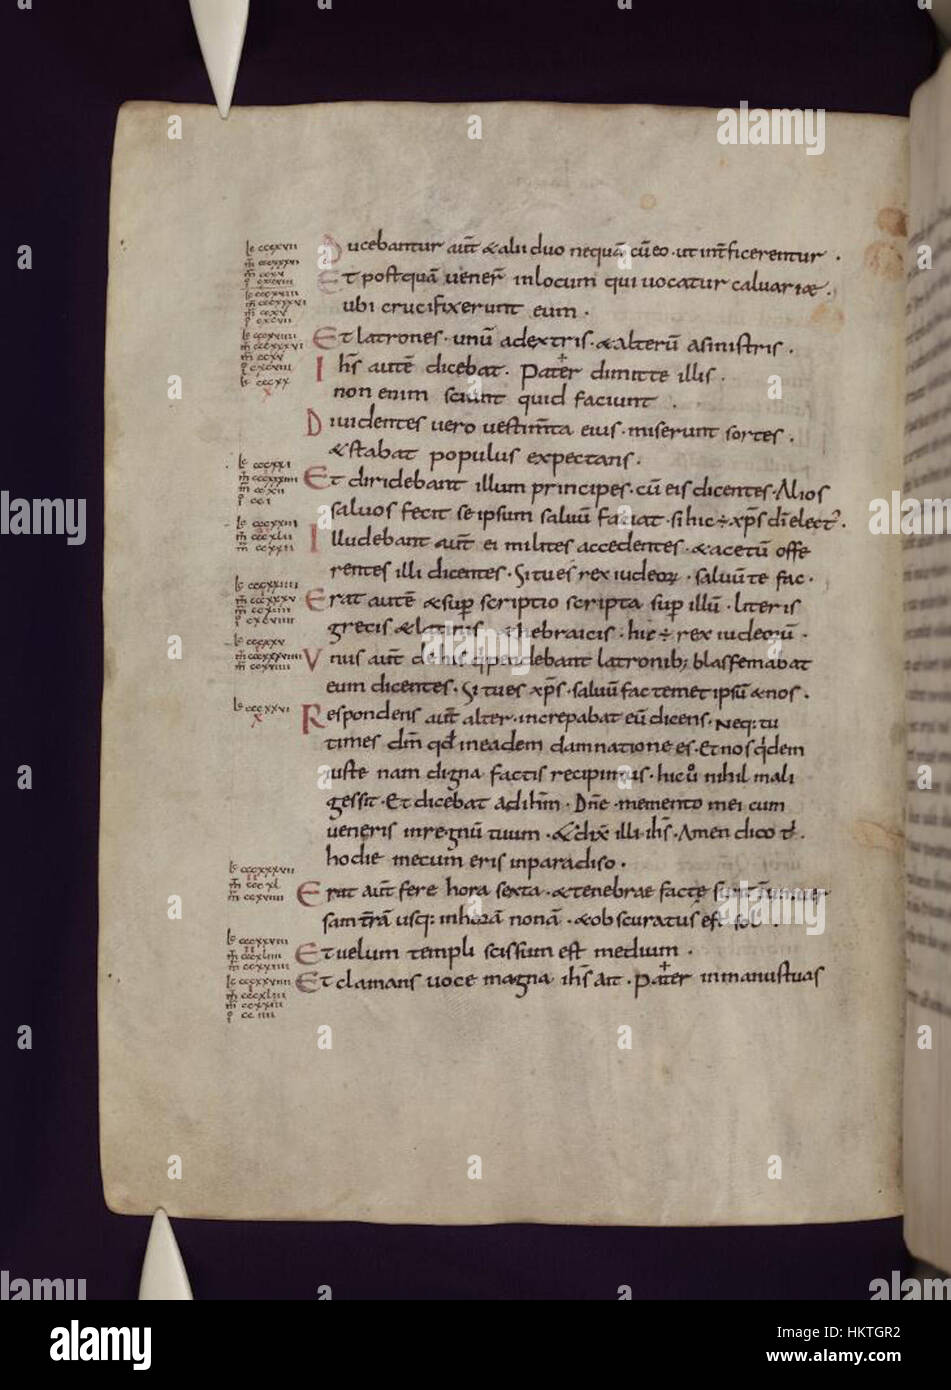 Ducebantur aut̄ & alii duo nequā cū eo · ut int̄ficerentur ·
Et postquā uener̄ in locum qui uocatur caluariae ·
ubi crucifixerunt eum ·
Et latrones · unū a dextris · & alterū a sinistris ·
Ih̄s autē dicebat · Pater dimitte illis ·
non enim sciunt quid faciunt ·
Diuidentes uero uestim̄ta eius · miserunt sortes ·
& stabat populus expectans ·
Et diridebant illum principes · cū eis dicentes · Alios
saluos fecit se ipsum saluū faciat · si hic ÷ xp̄s dī elect᾿ ·
Illudebant aut̄ ei milites accedentes · & acetū offe
rentes illi dicentes · Si tu es rex iudeoꝝ · saluū te fac ·
Erat autē & sup̄ scriptio scripta sup̄ illū · literis
grecis & latinis & hebraicis · hic ÷ rex iudeorū ·
Vnus aut̄ de his q pendebant latronib; blasfemabat
eum dicentes · Si tu es xp̄s · saluū fac temet ipsū & nos ·
Respondens aut̄ alter · increpabat eū dicens · Neq: tu
times dm̄ qđ in eadem damnatione es · Et nos qdem
iuste nam digna factis recipimus · hic uͦ nihil mali
gessit · Et dicebat ad ih̄m · Dn̄e · memento mei cum
ueneris in regnū tuum · & dix̄ illi ih̄s · Amen dico t᾿ ·
hodie mecum eris in paradiso ·
Erat aut̄ fere hora sexta · & tenebrae factę sunt in uniuer
sam tr̄am usq: in horam nonā · & obscuratus est sol ·
Et uelum templi scissum est medium ·
Et clamans uoce magna ih̄s ait · Pater in manus tuas
alamy
Image ID: HKTGR2
www.alamy.com